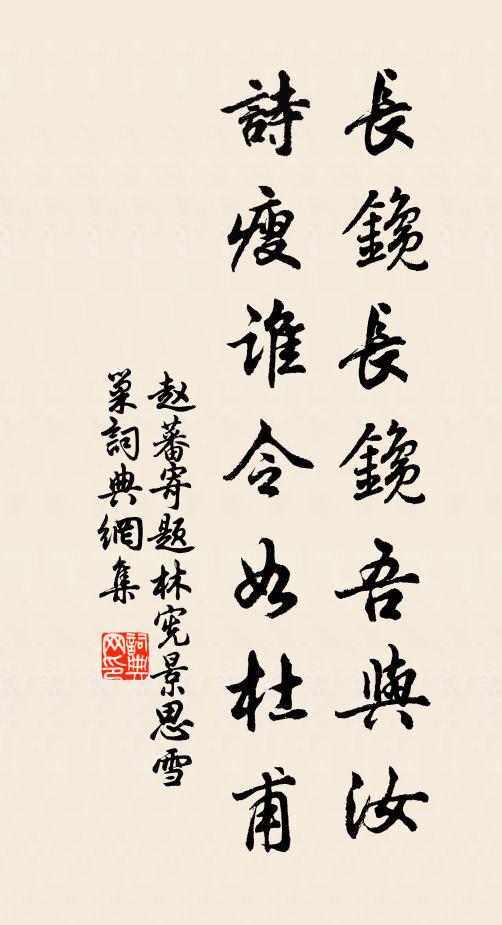 長鑱長鑱吾與汝
詩瘦誰令如杜甫
赵蕃寄题林宪景思雪
巢詞典網集
詞典
网印